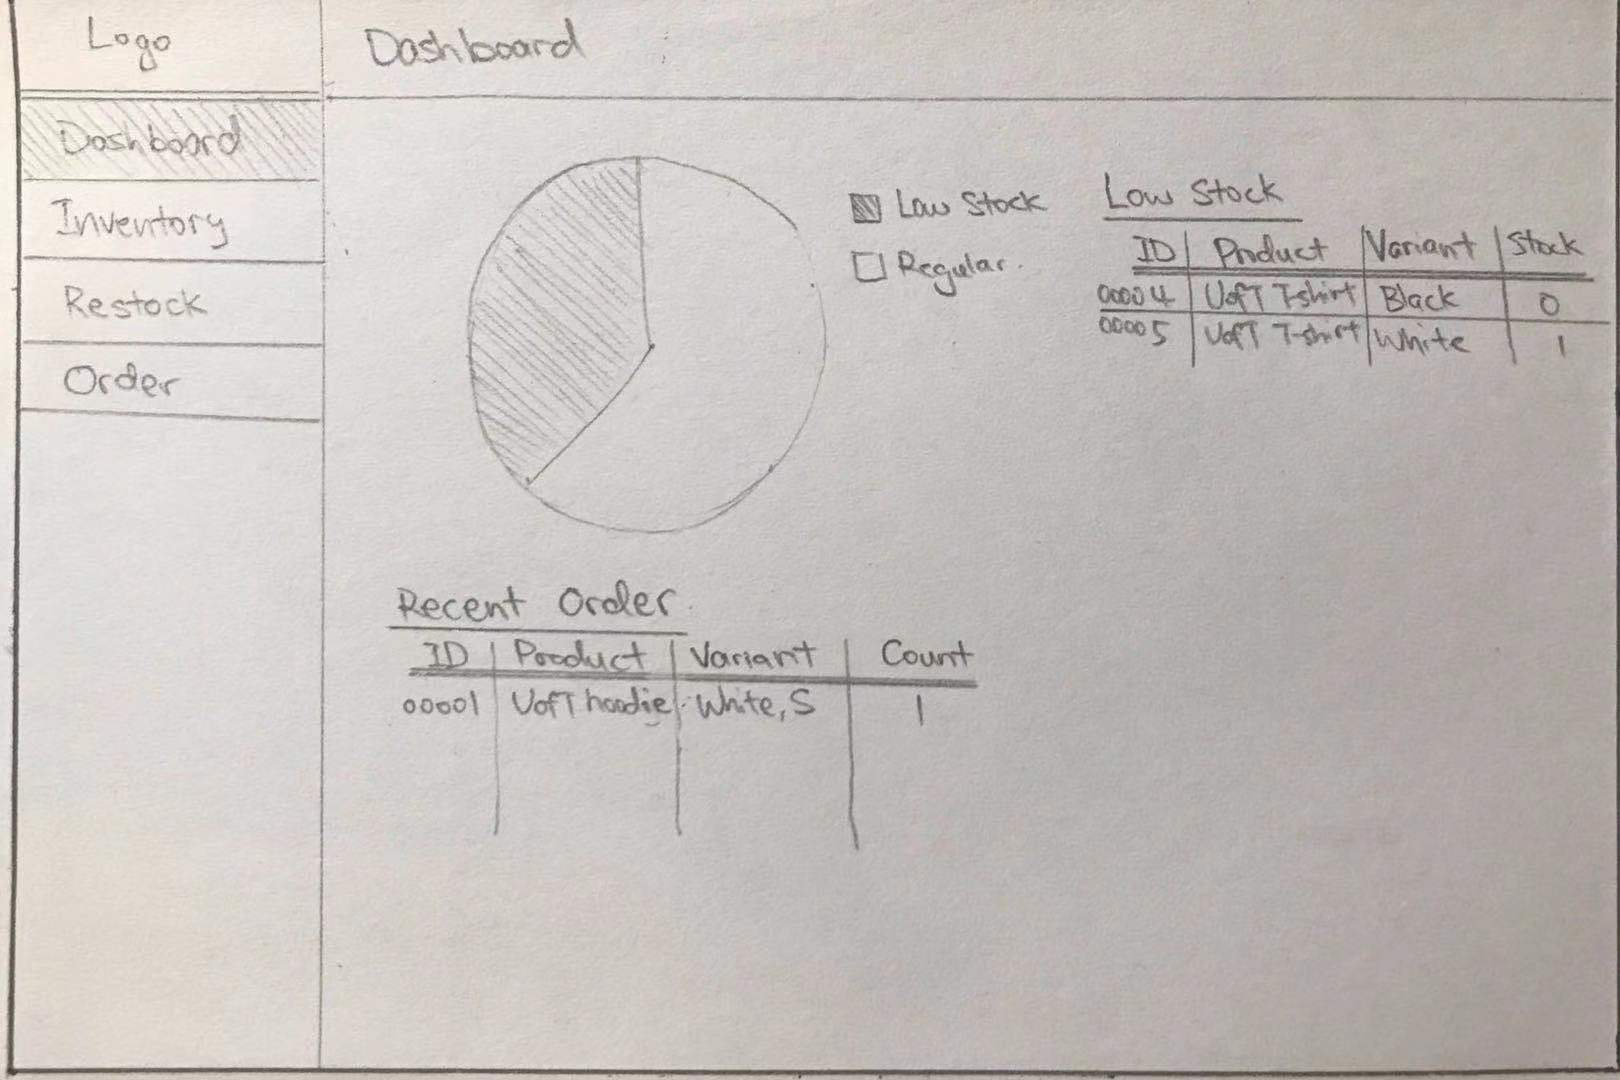 Logo
Dashboard
Dashboard
Inventory
Restock
Order
Low Stock
Regular.
Low Stock
ID Product Variant Stock
00004 UofT T-shirt Black 0
00005 UofT T-shirt White 1
Recent Order
ID Product Variant Count
00001 UofT hoodie White, S 1